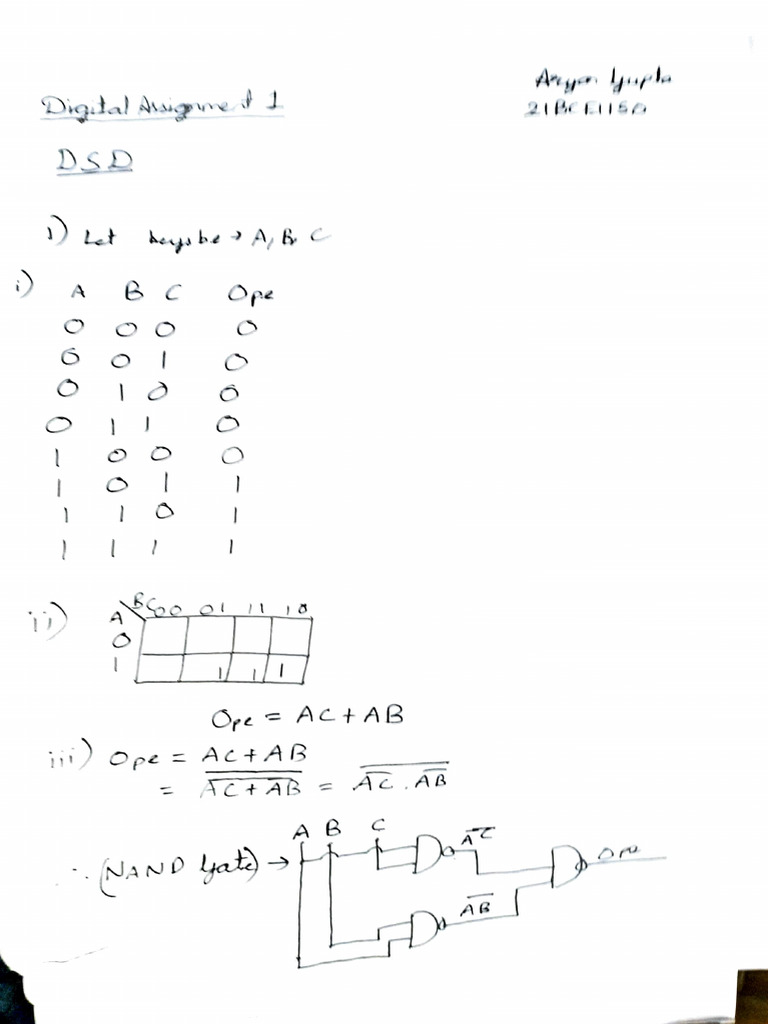 Aryan Gupta
Digital Assignment 1
21BCE1150
DSD
1) Let keys be → A, B, C
i) A B C Ope
0 0 0 0
0 0 1 0
0 1 0 0
0 1 1 0
1 0 0 0
1 0 1 1
1 1 0 1
1 1 1 1
ii) A BC 00 01 11 10
0
1 1 1 1
Ope = AC + AB
iii) Ope = AC + AB
= \overline{\overline{AC + AB}} = \overline{\overline{AC} . \overline{AB}}
A B C \overline{AC}
∴ (NAND Gate) → Ope
\overline{AB}